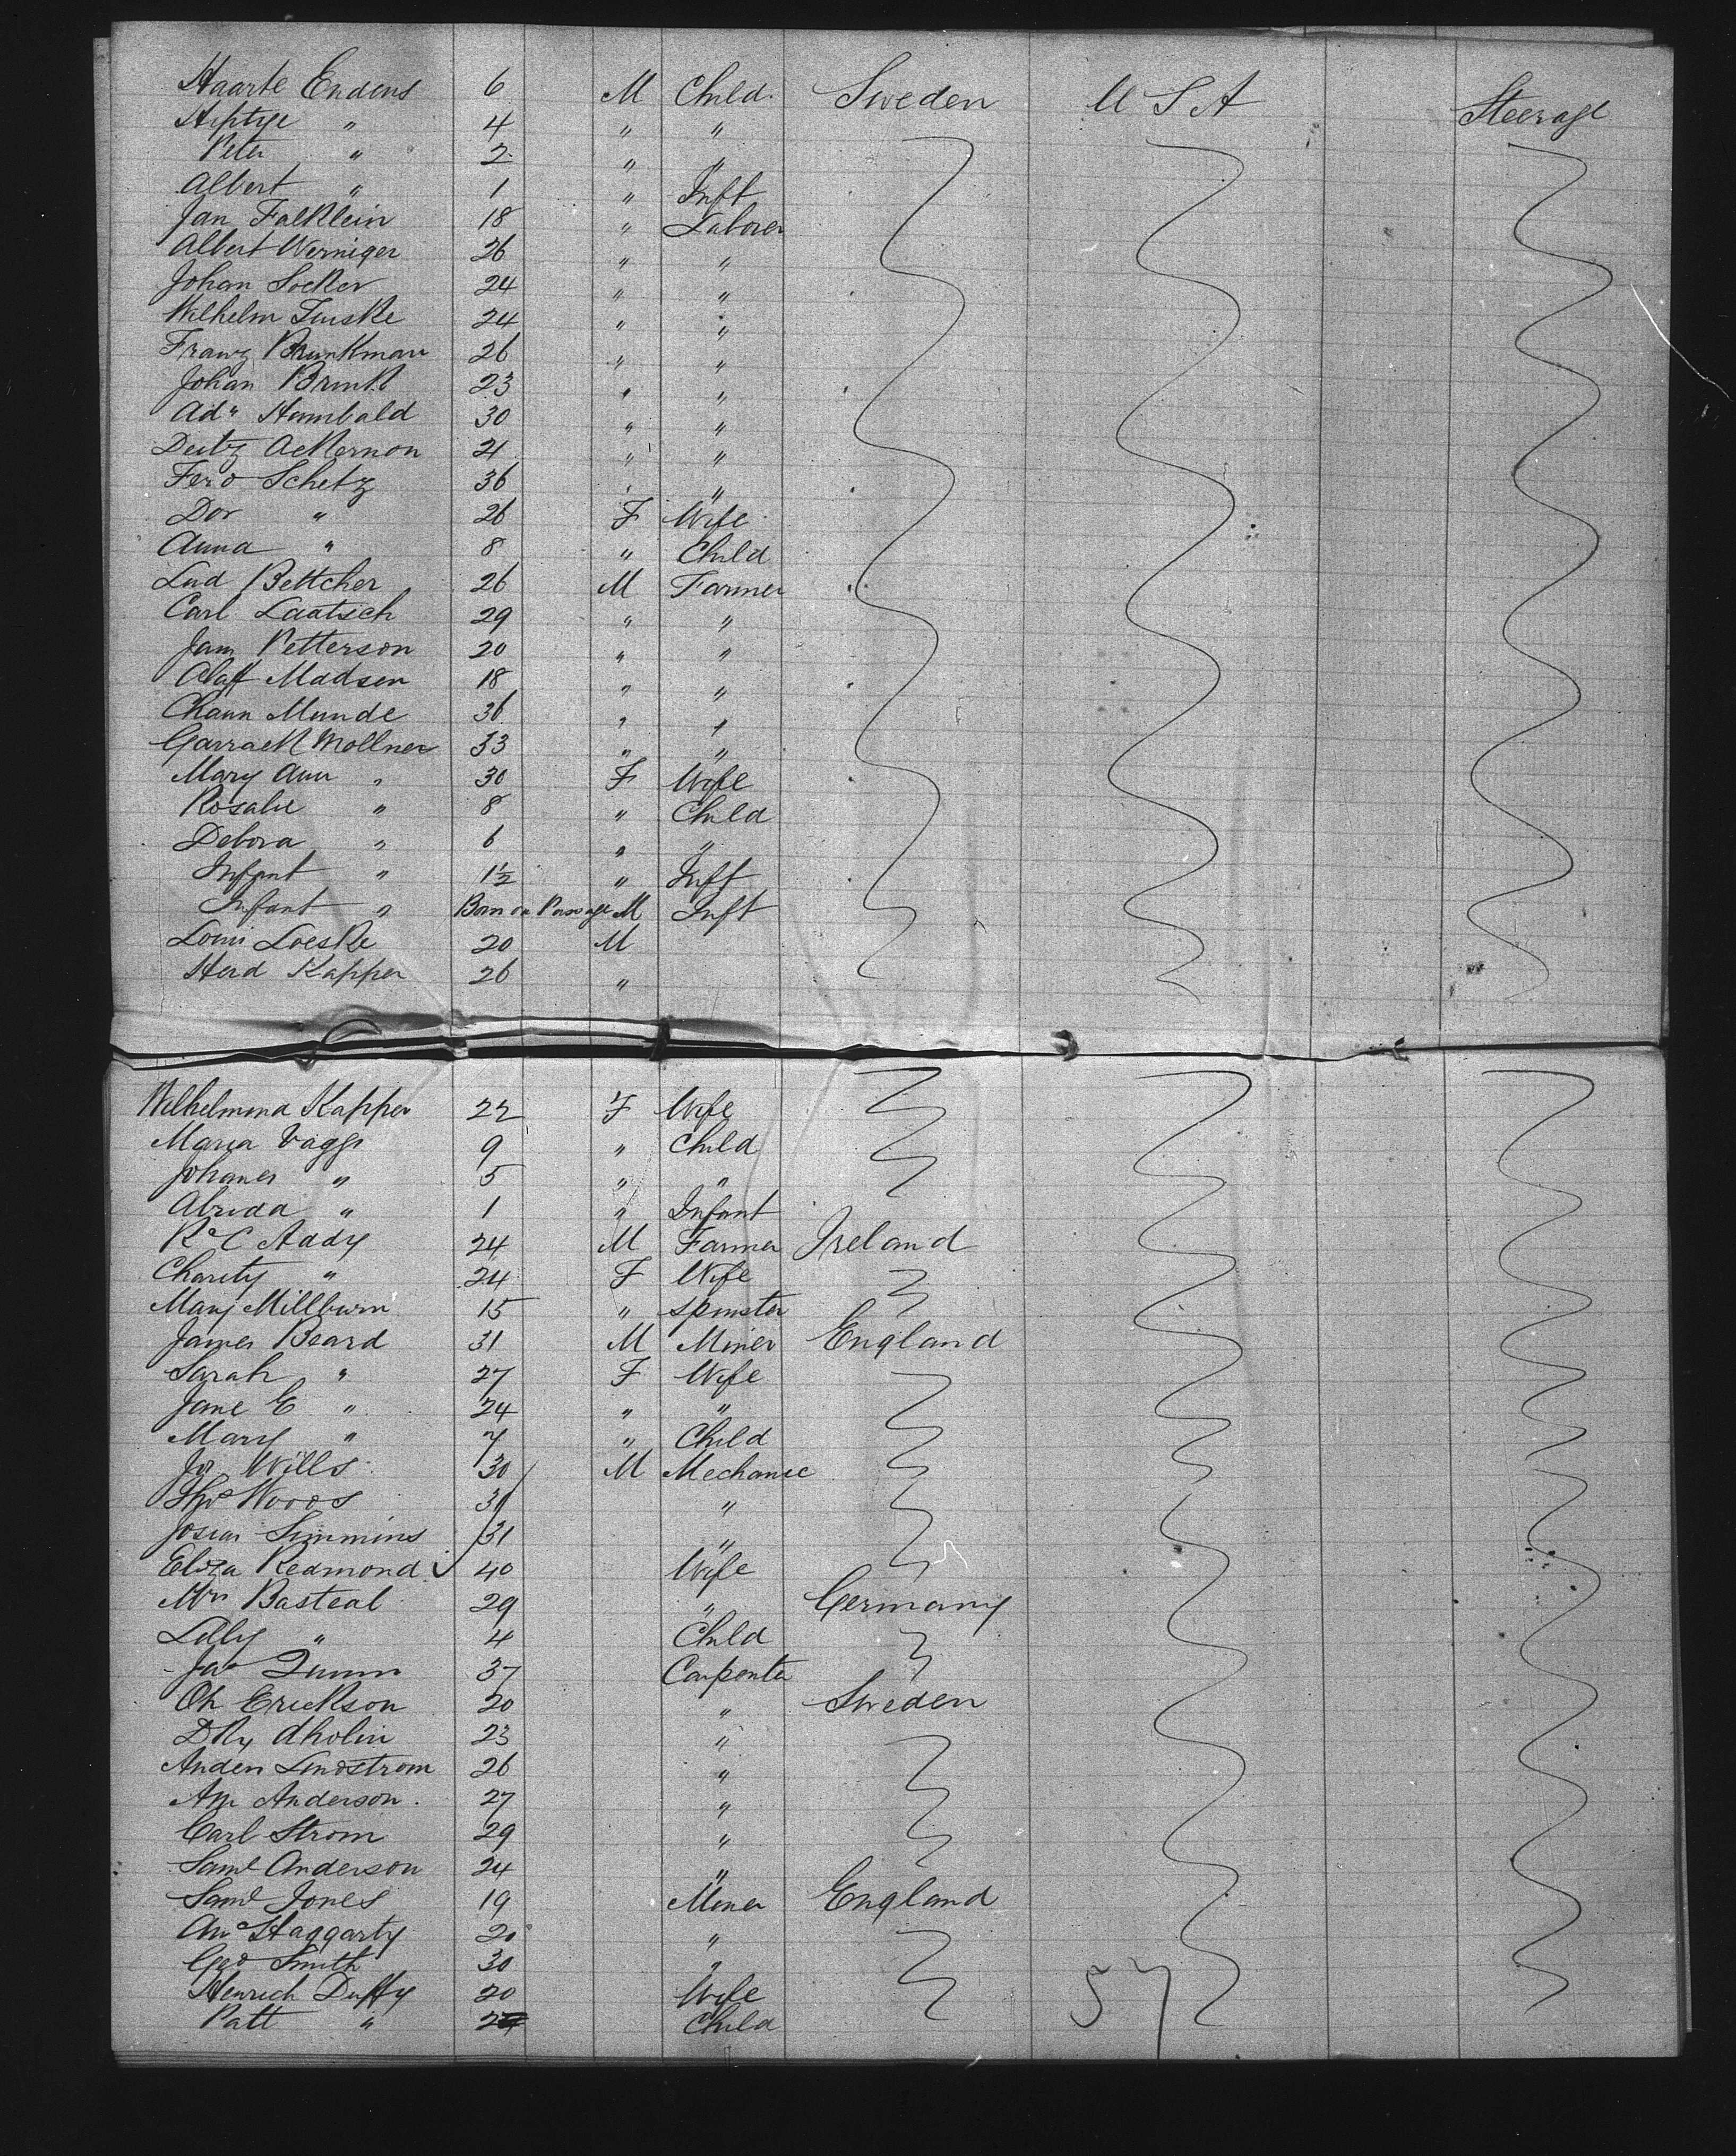 Haarte Endens 6 M Child Sweden U S A Steerage
" 4 " "
Peter " 2 " "
Albert " 1 " Inft
Jan Falklein 18 " Laborer
Albert Werniger 26 " "
Johan Locker 24 " "
Wilhelm 24 " "
Franz Brunkman 26 " "
Johan Brink 23 " "
Ad" Humbald 30 " "
Deitz Ackernon 21 " "
Ferd Schetz 36 " "
Dor " 26 F Wife
Anna " 8 " Child
Lud Bettcher 26 M Farmer
Carl Laatsch 29 " "
Jam Petterson 20 " "
Olaff Madsen 18 " "
Chann Munde 36 " "
Garrack Mollner 33 " "
Mary Ann " 30 F Wife
Rosalie " 8 " Child
Debora " 6 " "
Infant " 1½ " Inft
Infant " Born on Passage M Inft
Loui Loeske 20 M
Herd Kapper 26 "
Wilhelmina Kapper 22 F Wife
Maria Vaggs 9 " Child
Johanes " 5 " "
Alrida " 1 " Infant
R C Addy 24 M Farmer Ireland
Charity " 24 F Wife
Mary Millburn 15 " Spinster
James Beard 31 M Miner England
Sarah " 27 F Wife
Jane E " 24 " "
Mary " 7 " Child
Jo Wills 30 M Mechanic
Thos Woods 31 "
Josiah Simmins 31 "
Eliza Redmond 40 Wife
Mrs Basteal 29 " Germany
Lilly " 4 Child
Jas Quinn 37 Carpenter
Oh Erickson 20 " Sweden
dholin 23 "
Anders Lindstrom 26 "
Am Anderson 27 "
Carl Strom 29 "
Saml Anderson 24 "
Saml Jones 19 Miner England
Haggarty 20 "
Geo Smith 30 "
Henrich Duffy 20 Wife
Patt " Child
57